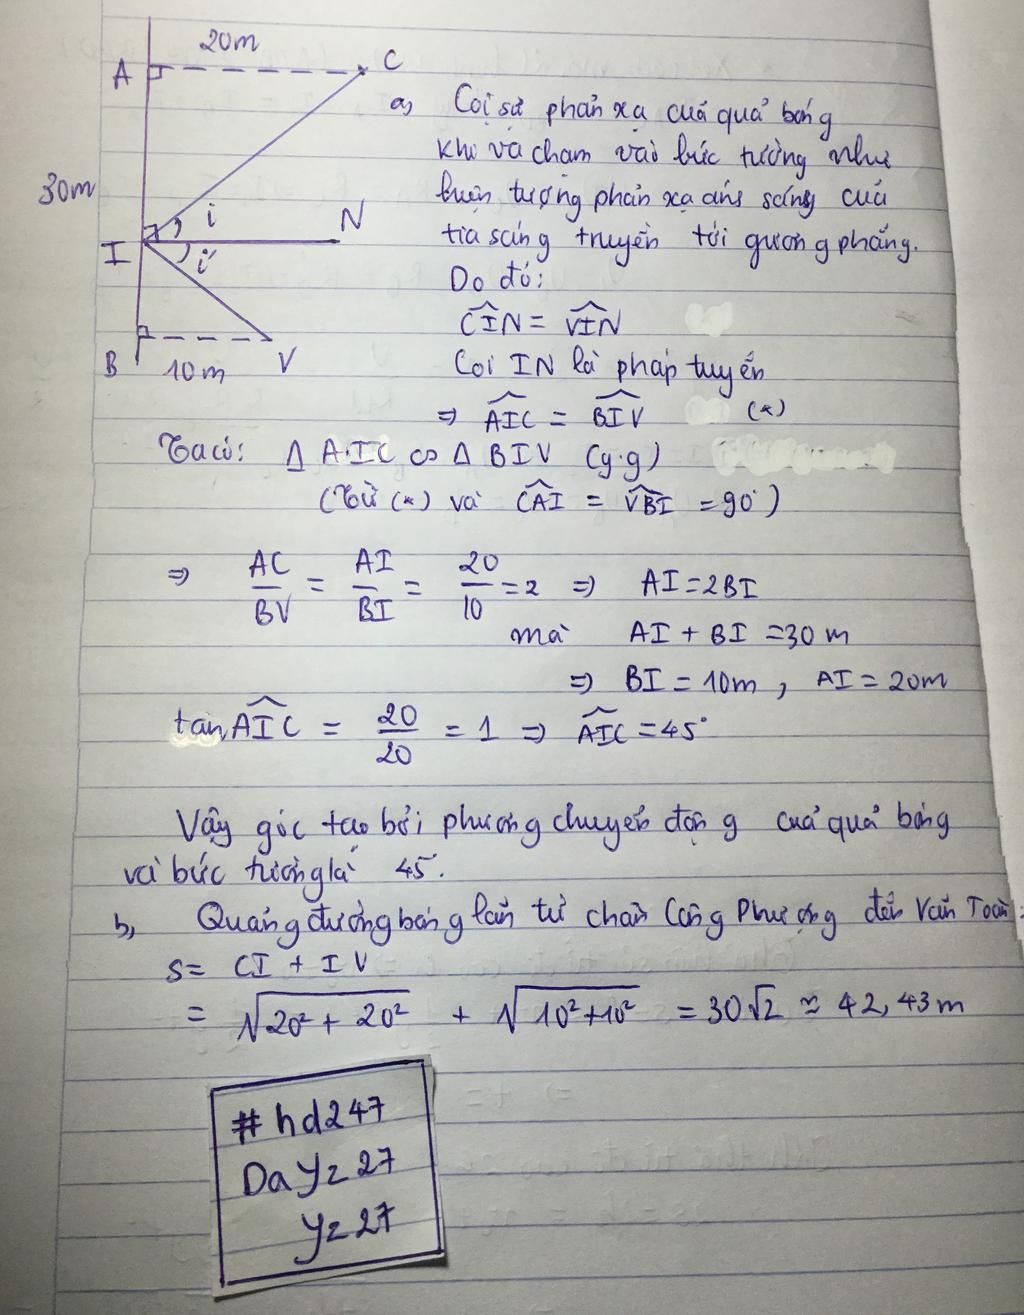 20m
A
C
30m
i
N
I
i'
B
10m
V
a, Coi sự phản xạ của quả bóng
khi va chạm vào bức tường như
hiện tượng phản xạ ánh sáng của
tia sáng truyền tới gương phẳng.
Do đó:
\widehat{CIN} = \widehat{VIN}
Coi IN là pháp tuyến
⇒ \widehat{AIC} = \widehat{BIV} (*)
Ta có: Δ AIC ∽ Δ BIV (g.g)
(Từ (*) và \widehat{CAI} = \widehat{VBI} = 90°)
⇒ \frac{AC}{BV} = \frac{AI}{BI} = \frac{20}{10} = 2 ⇒ AI = 2BI
mà AI + BI = 30 m
⇒ BI = 10m, AI = 20m
tan \widehat{AIC} = \frac{20}{20} = 1 ⇒ \widehat{AIC} = 45°
Vậy góc tạo bởi phương chuyển động của quả bóng
và bức tường là 45°.
b, Quãng đường bóng lăn từ chân Công Phượng đến Văn Toàn:
S = CI + IV
= \sqrt{20² + 20²} + \sqrt{10² + 10²} = 30√2 ≈ 42,43m
#hd247
DaYz27
Yz27